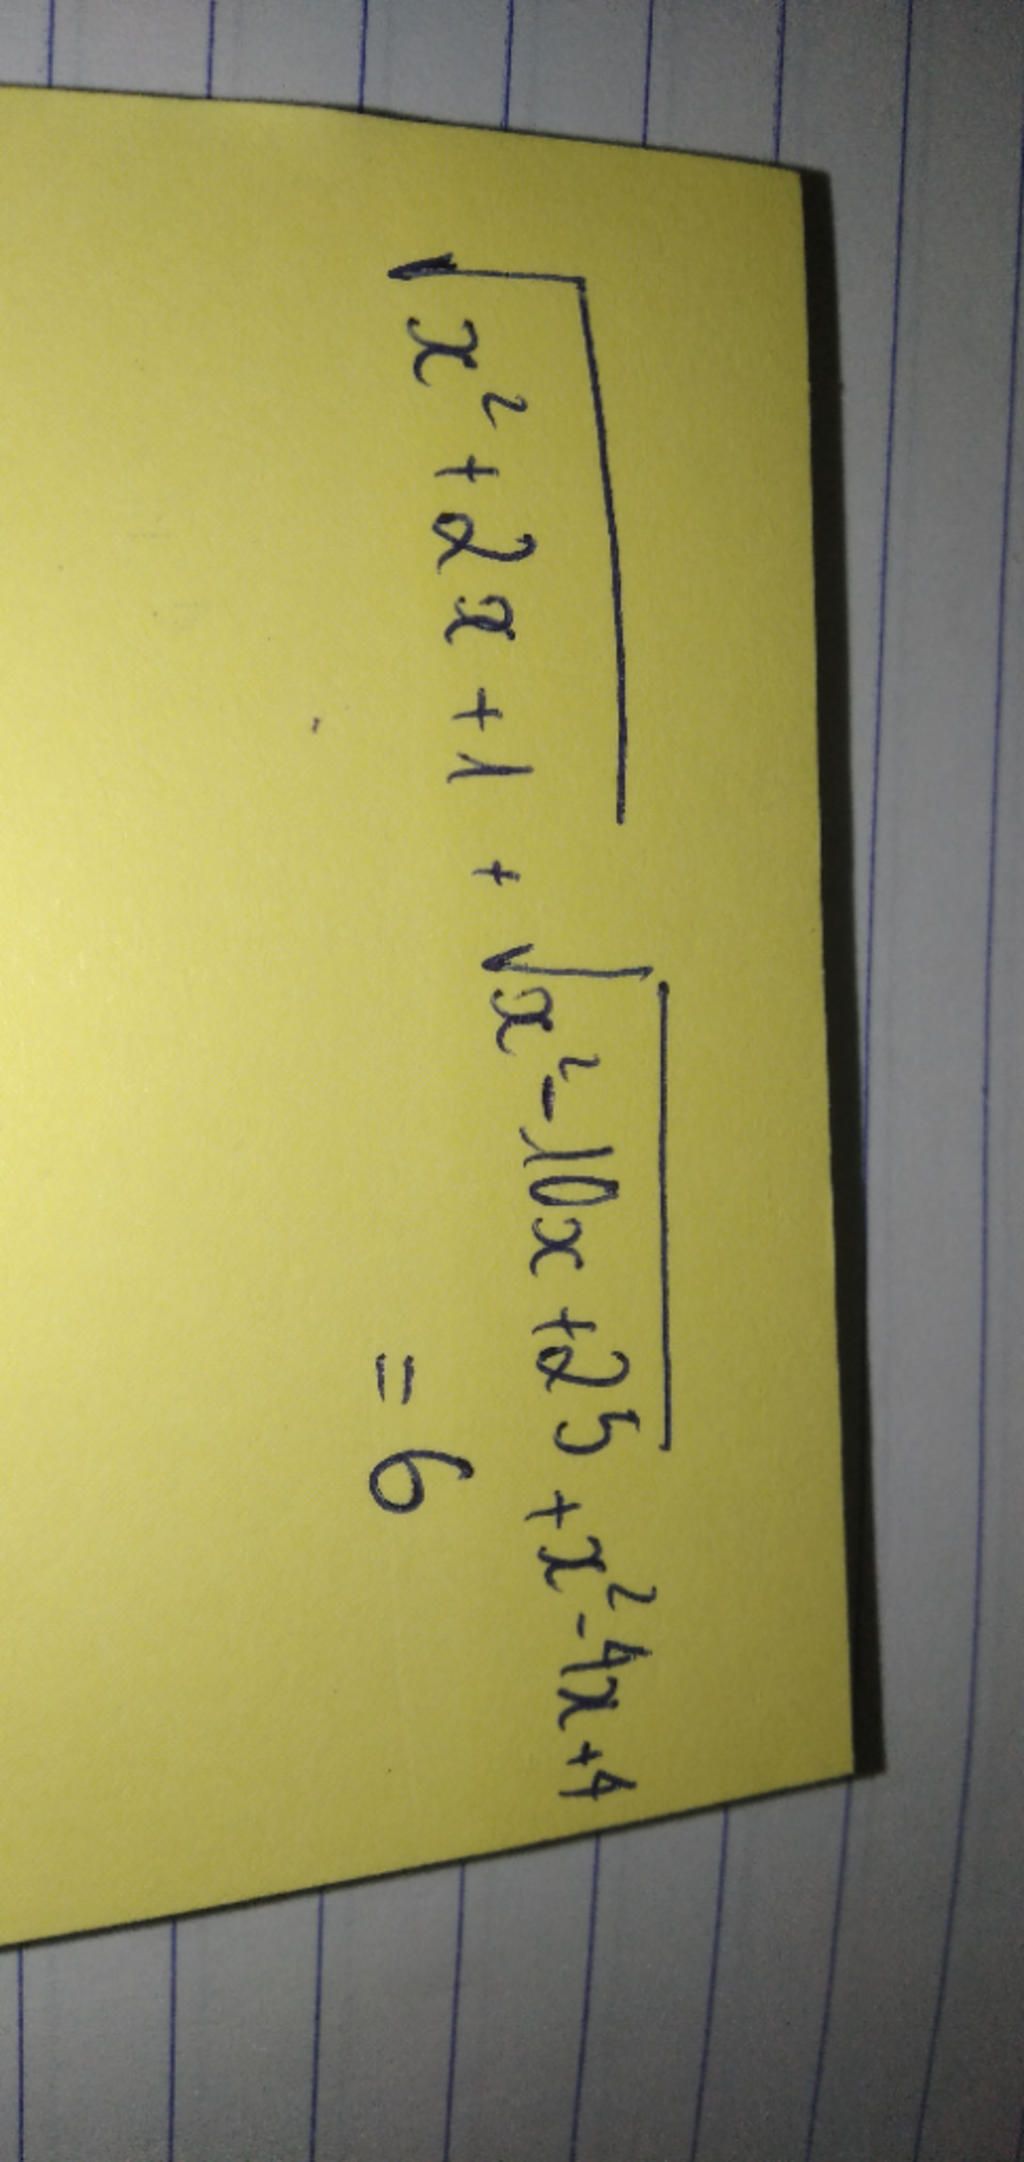 √x² + 2x + 1 + √x² - 10x + 25 + x² - 4x + 4
= 6